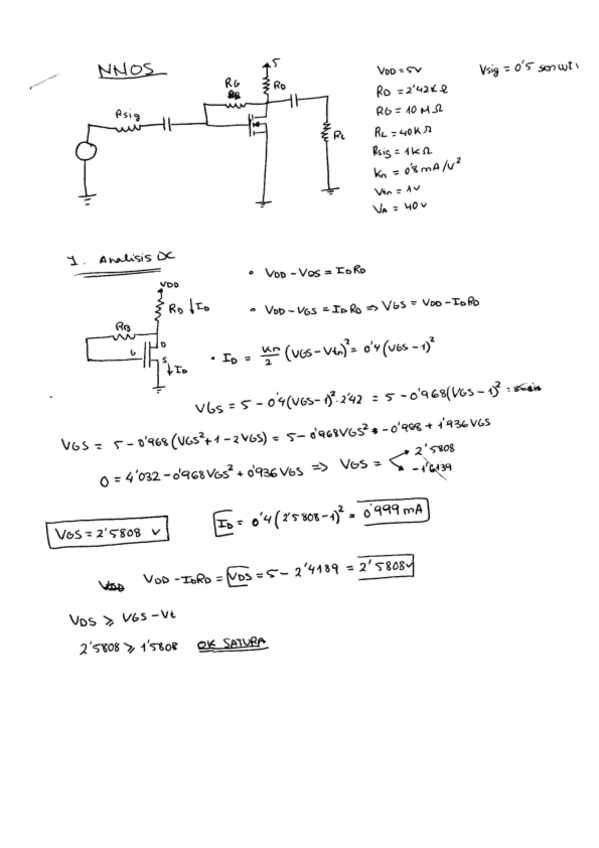 NNOS
5
RG
RD
Rsig
RL
VDD = 5V
RD = 2'42K Ω
RG = 10 M Ω
RL = 40K Ω
Rsig = 1K Ω
Kn = 0'8 mA/V²
Vtn = 1V
VA = 40V
Vsig = 0'5 sen wt
1. Analisis DC
VDD
RD ↓ ID
RB
G
D
S
↓ ID
• VDD - VDS = ID RD
• VDD - VGS = ID RD => VGS = VDD - ID RD
• ID = Kn/2 (VGS - Vtn)² = 0'4 (VGS - 1)²
VGS = 5 - 0'4(VGS-1)²·2'42 = 5 - 0'968(VGS-1)² =
VGS = 5 - 0'968 (VGS² + 1 - 2VGS) = 5 - 0'968VGS² - 0'968 + 1'936 VGS
0 = 4'032 - 0'968 VGS² + 0'936 VGS => VGS = 2'5808
-1'6139
VGS = 2'5808 V
ID = 0'4 (2'5808 - 1)² = 0'999 mA
VDD - ID RD = VDS = 5 - 2'4189 = 2'5808V
VDS ≥ VGS - Vt
2'5808 ≥ 1'5808 OK SATURA